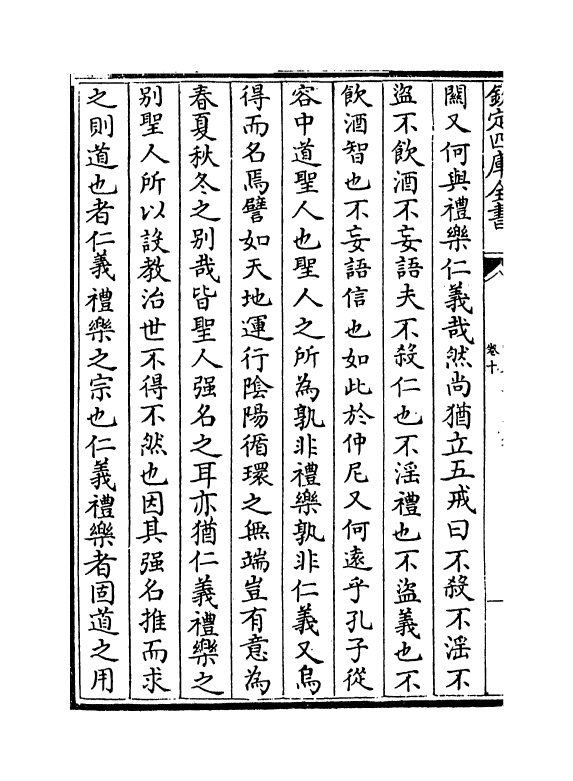 欽定四庫全書
卷十
闗又何與禮樂仁義哉然尚猶立五戒曰不殺不淫不
盜不飲酒不妄語夫不殺仁也不淫禮也不盜義也不
飲酒智也不妄語信也如此於仲尼又何逺乎孔子從
容中道聖人也聖人之所為孰非禮樂孰非仁義又烏
得而名焉譬如天地運行陰陽循環之無端豈有意為
春夏秋冬之别哉皆聖人强名之耳亦猶仁義禮樂之
别聖人所以設教治世不得不然也因其强名推而求
之則道也者仁義禮樂之宗也仁義禮樂者固道之用